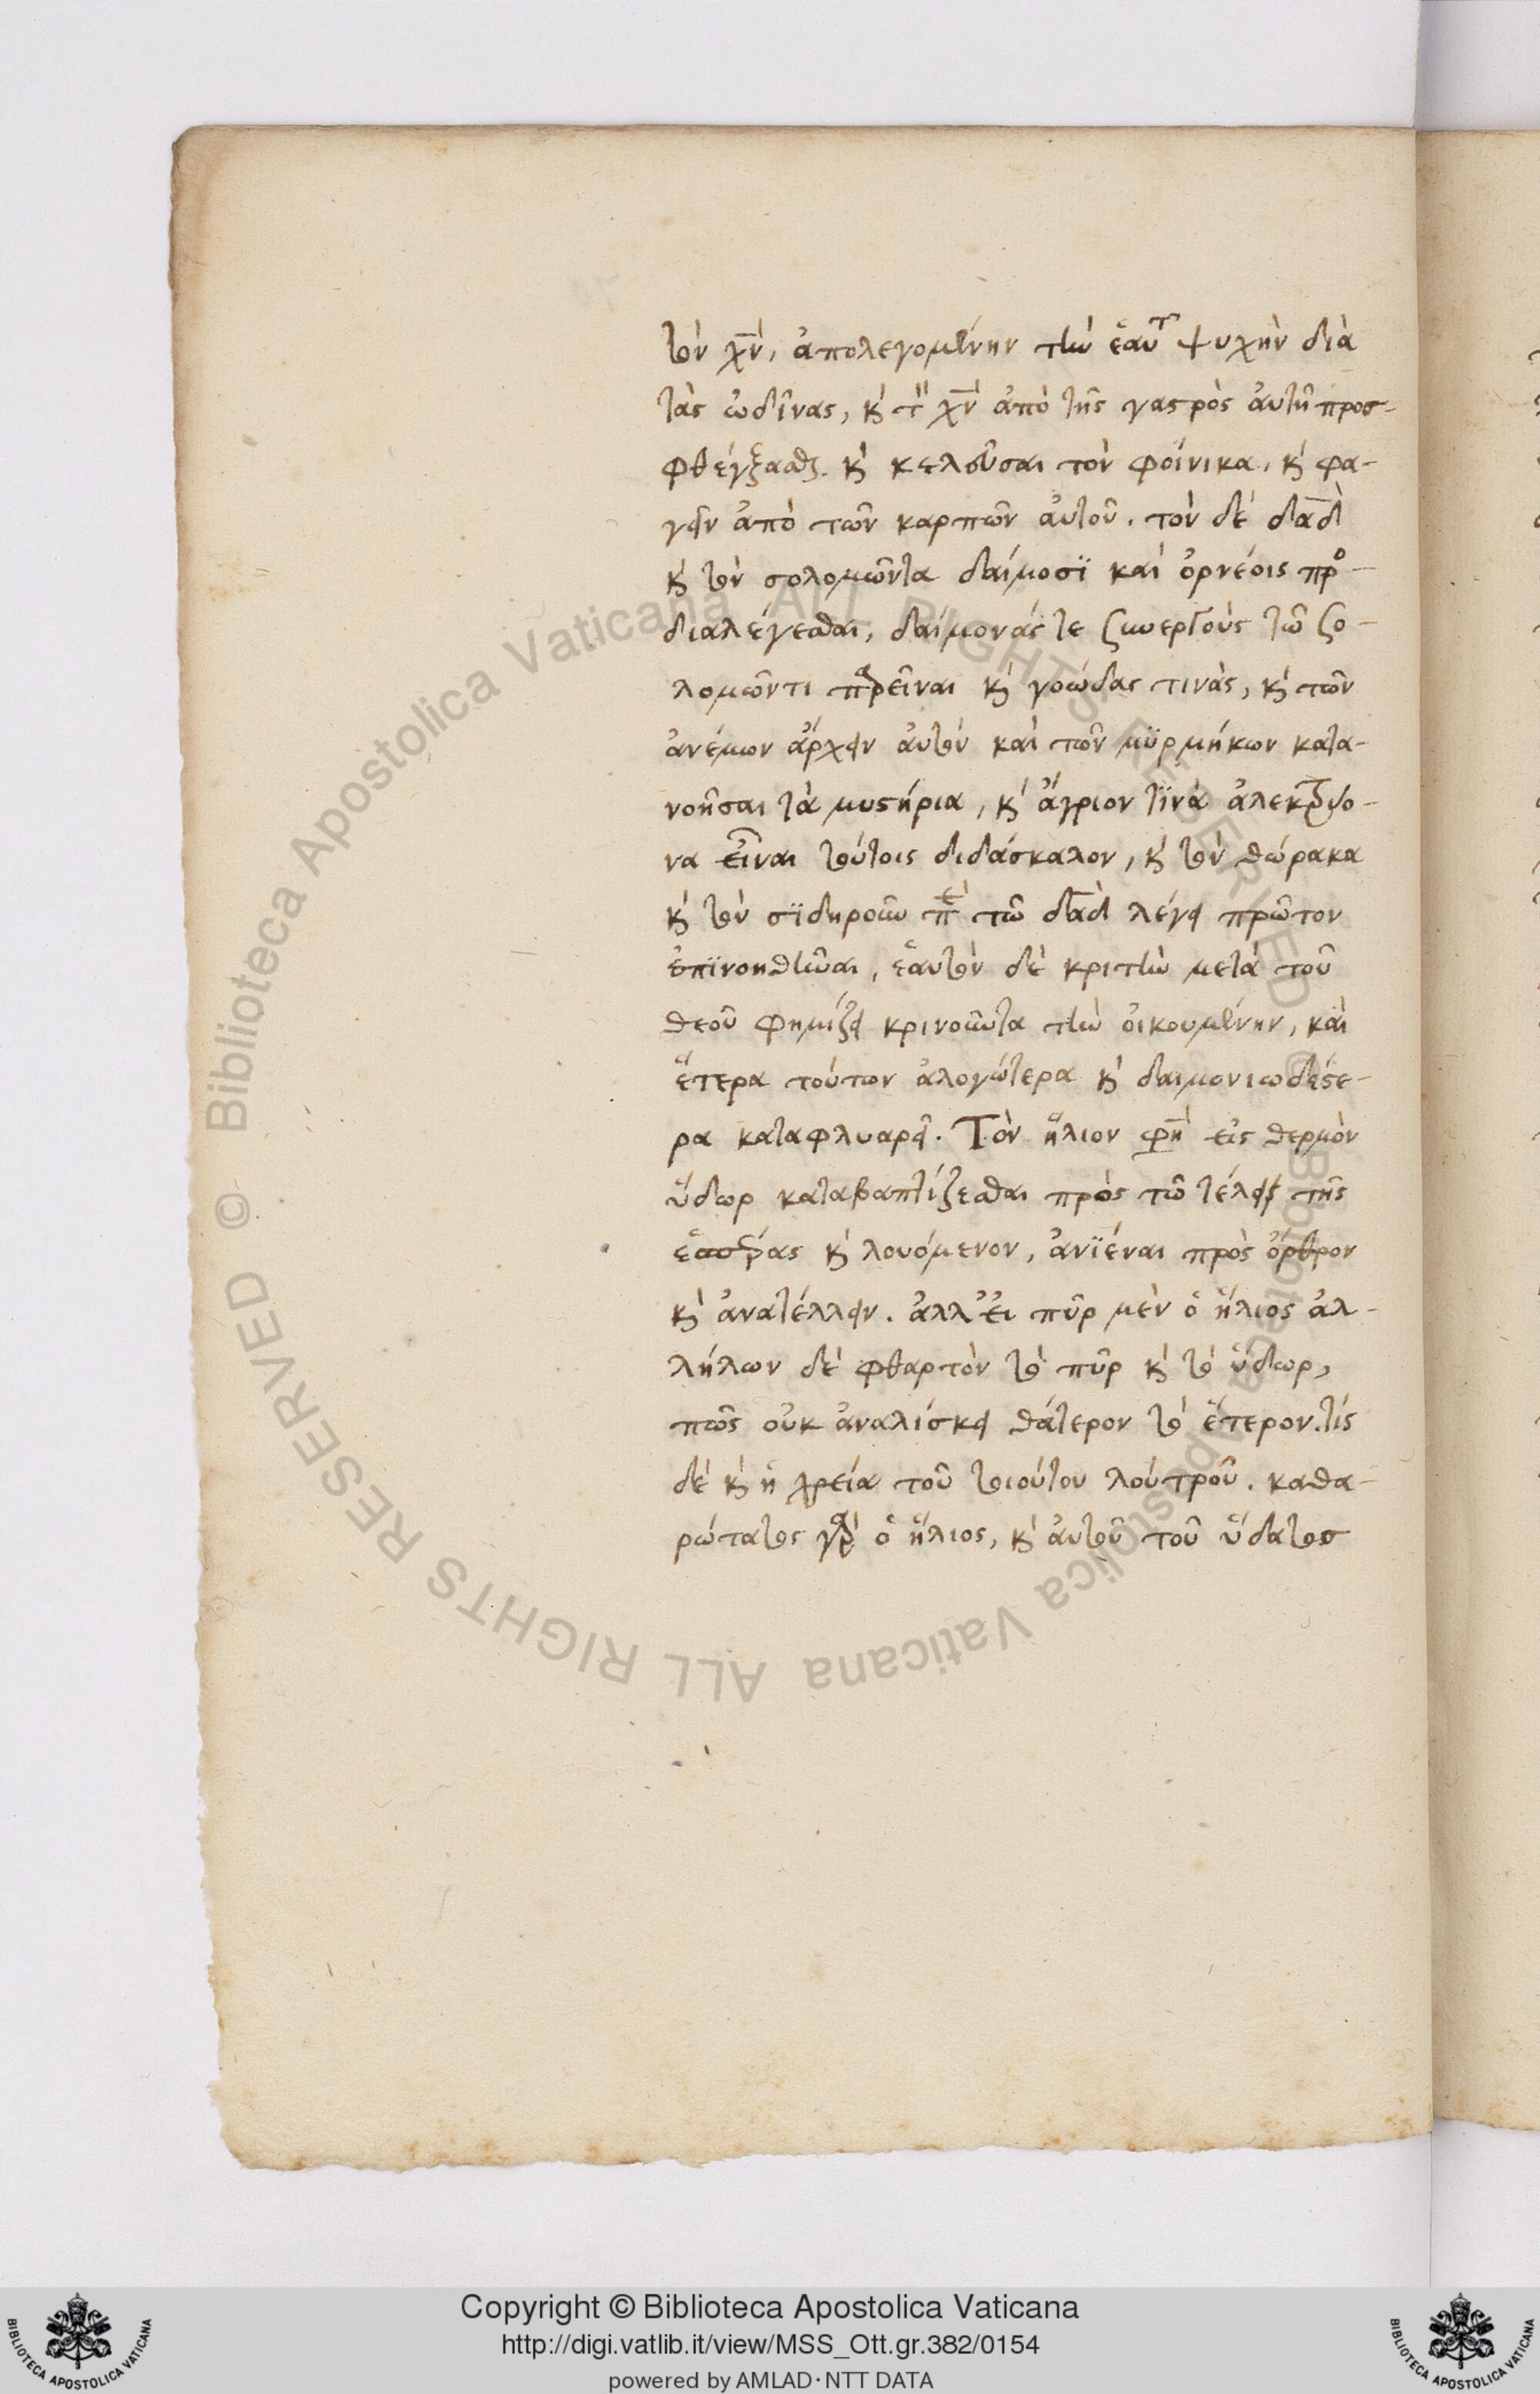 τὸν χν̄, ἀπολεγομένην τὴν ἑαυτ ψυχὴν διὰ
τὰς ὠδῖνας, κ̀ τ̀ χν̄ ἀπὸ τῆς γαστρὸς ἀυτῆ προσ-
φθέγξασθαι. κ̀ κελεῦσαι τὸν φοίνικα, κ̀ φα-
γεῖν ἀπὸ τῶν καρπῶν ἀυτοῦ. τὸν δὲ δαδ̄
κ̀ τὸν σολομῶντα δαίμοσϊ καὶ ὀρνέοις προ-
διαλέγεσθαι, δαίμονάς τε ζυνεργοὺς τῶ ζο-
λομῶντι παρεῖναι κ̀ γοώδας τινὰς, κ̀ τῶν
ἀνέμων ἄρχειν ἀυτὸν καὶ τῶν μϋρμήκων κατα-
νοῆσαι τὰ μυστήρια, κ̀ ἄγριον τϊνὰ ἀλεκτρυο-
να εἶναι τούτοις διδάσκαλον, κ̀ τὸν θώρακα
κ̀ τὸν σϊδηροῦν πὲ τῶ δαδ̄ λέγει πρῶτον
ἐπϊνοηθῆναι, ἑαυτὸν δὲ κριτὴν μετὰ τοῦ
θεοῦ φημίζει κρινοῦντα τὴν οἰκουμένην, καὶ
ἕτερα τούτων ἀλογώτερα κ̀ δαιμονιωδέστε-
ρα καταφλυαρεῖ. Τὸν ἥλιον φη̄ εἰς θερμὸν
ὕδωρ καταβαπτίζεσθαι πρὸς τῶ τέλει τῆς
ἑσπέρας κ̀ λουόμενον, ἀνϊέναι πρὸς ὄρθρον
κ̀ ἀνατέλλειν. ἀλλ' εἰ πῦρ μὲν ὁ ἥλιος ἀλ-
λήλων δὲ φθαρτὸν τὸ πῦρ κ̀ τὸ ὕδωρ,
πῶς οὐκ ἀναλίσκει θάτερον τὸ ἕτερον. τίς
δὲ κ̀ ἡ χρεία τοῦ τοιούτου λούτροῦ. καθα-
ρώτατος γὰρ ὁ ἥλιος, κ̀ ἀυτοῦ τοῦ ὕδατος
Copyright © Biblioteca Apostolica Vaticana
http://digi.vatlib.it/view/MSS_Ott.gr.382/0154
powered by AMLAD·NTT DATA